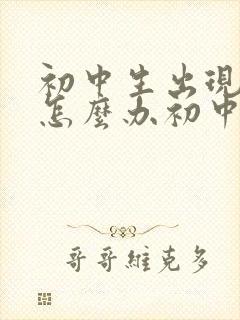 初中生出現
怎麼办初中
哥哥維克多